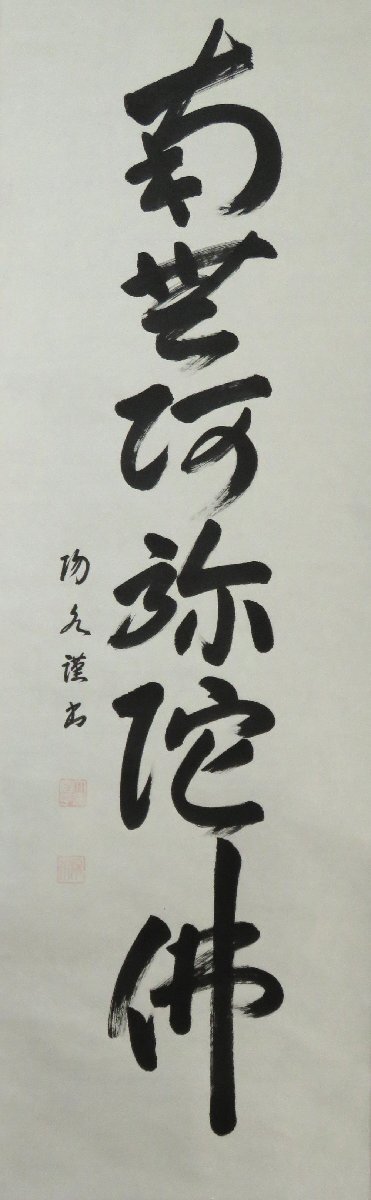 南無阿弥陀佛
陽久謹書